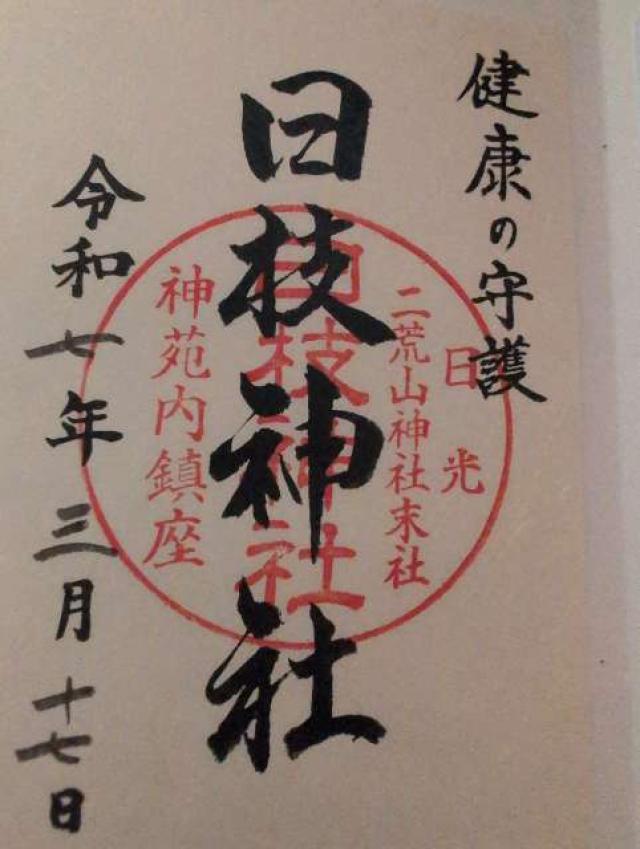 健康の守護
日光
二荒山神社末社
日枝神社
日枝神社
神苑内鎮座
令和七年三月十七日